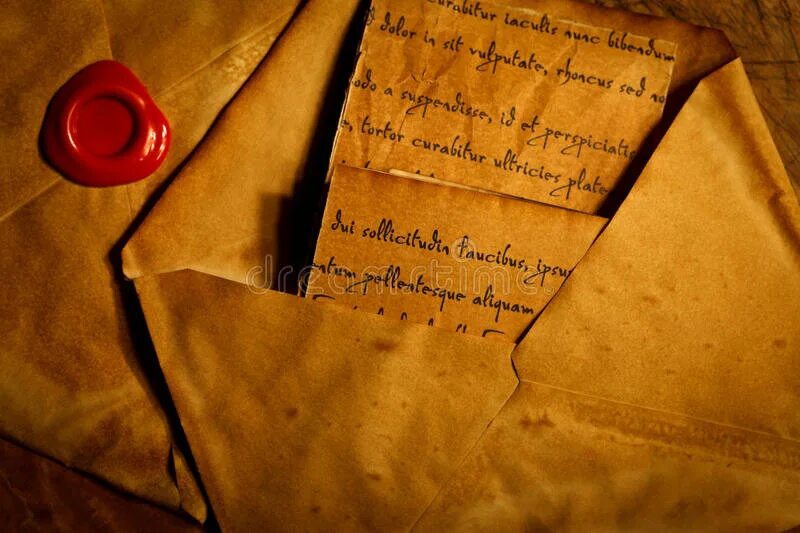 curabitur iaculis nunc bibendum
dolor in sit vulputate, rhoncus sed
a suspendisse, id et perspiciatis
tortor curabitur ultricies
dui sollicitudin faucibus,
pellentesque aliquam
dreamstime